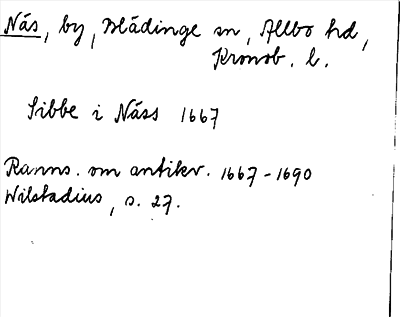 Näs, by, Blädinge sn, Allbo hd,
Kronob. l.
Sibbe i Näss 1667
Ranns. om antikv. 1667-1690
Wilstadius, s. 27.